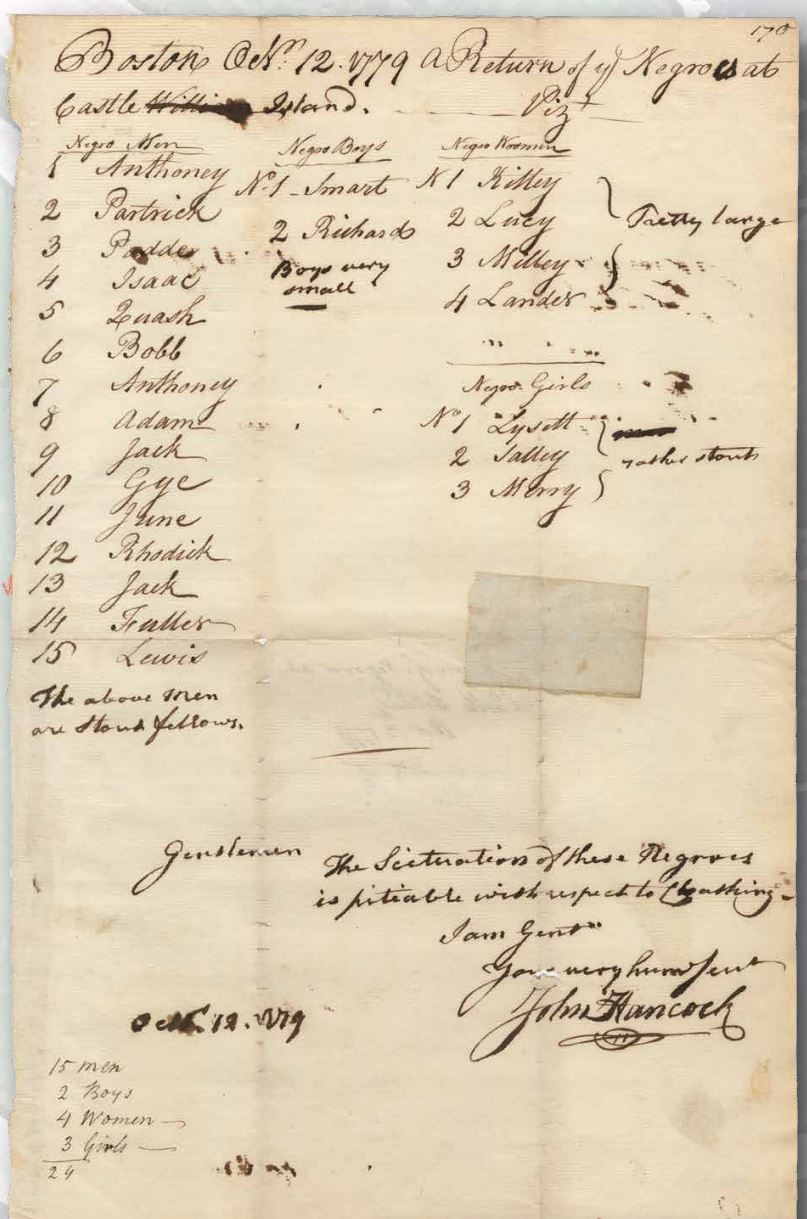 170
Boston Octr. 12. 1779 A Return of ye Negroes at
Castle Island. Vizt
Negro Men
1 Anthoney
2 Partrick
3 Padde
4 Isaac
5 Quash
6 Bobb
7 Anthoney
8 Adam
9 Jack
10 Gye
11 June
12 Rhodick
13 Jack
14 Fuller
15 Lewis
The above Men
are Stout fellows.
Negro Boys
No. 1 Smart
2 Richard
Boys very
small
Negro Woomen
N 1 Kittey
2 Lucy
3 Milley
4 Lander
Pretty large
Negro Girls
No 1 Lysett
2 Salley
3 Merry
rather stout
Gentlemen
The Scituration of these Negroes
is piteable with respect to Cloathing
I am Gentn
Your very hum Servt
John Hancock
Octr. 12. 1779
15 men
2 Boys
4 Women
3 Girls
24